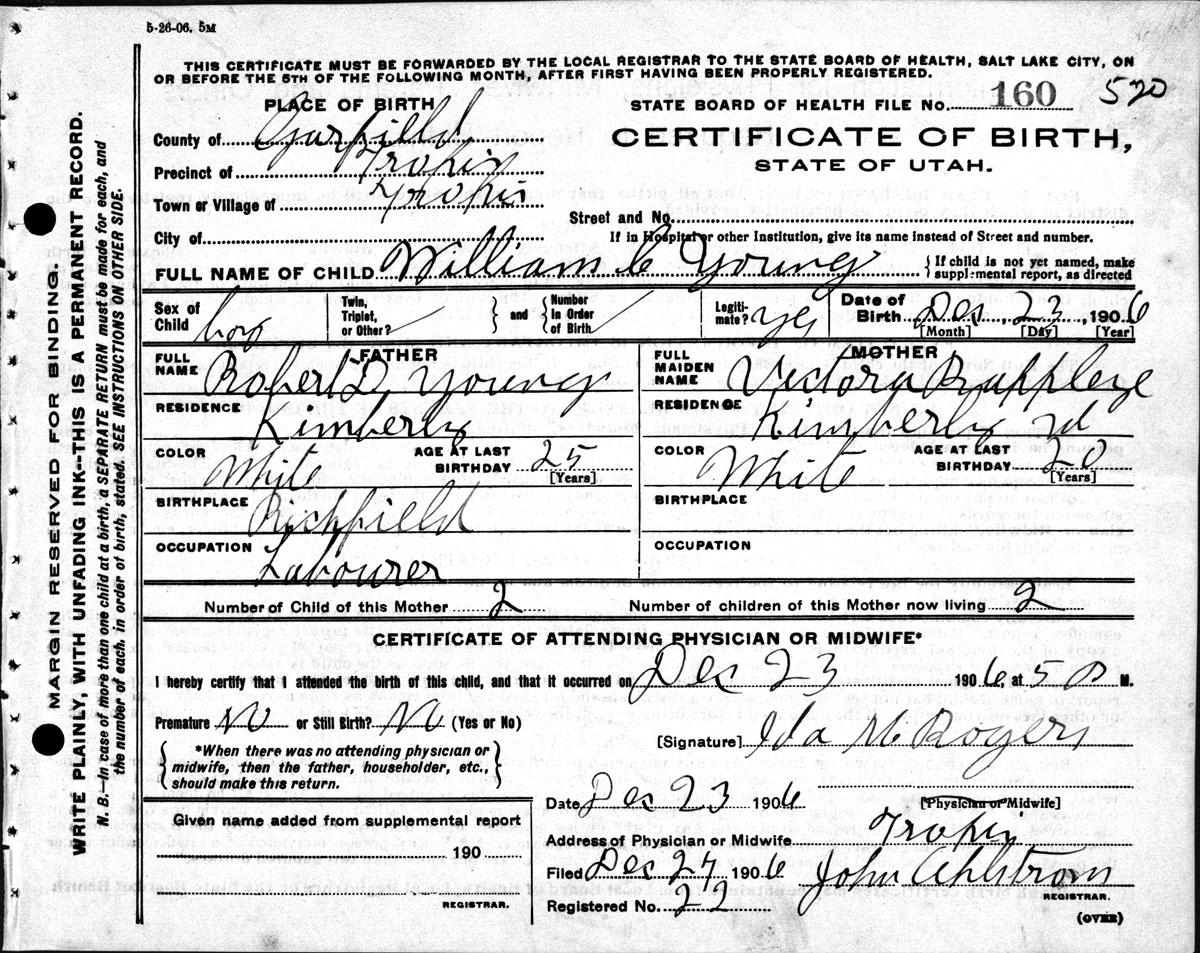 5-26-06. 5M
THIS CERTIFICATE MUST BE FORWARDED BY THE LOCAL REGISTRAR TO THE STATE BOARD OF HEALTH, SALT LAKE CITY, ON
OR BEFORE THE 5TH OF THE FOLLOWING MONTH, AFTER FIRST HAVING BEEN PROPERLY REGISTERED.
PLACE OF BIRTH
STATE BOARD OF HEALTH FILE No. 160 520
County of Garfield
CERTIFICATE OF BIRTH,
STATE OF UTAH.
Precinct of Tropic
Town or Village of Tropic
Street and No.
City of
If in Hospital or other Institution, give its name instead of Street and number.
FULL NAME OF CHILD William C Young { If child is not yet named, make supplemental report, as directed
Sex of Child boy Twin, Triplet, or Other? / { and } Number in Order of Birth / Legiti-mate? yes Date of Birth Des, 23, 1906
[Month] [Day] [Year]
FATHER
FULL NAME Robert D, Young
MOTHER
FULL MAIDEN NAME Victora Rappleye
RESIDENCE Kimberly
RESIDENCE Kimberly
COLOR White AGE AT LAST BIRTHDAY 25 [Years]
COLOR White AGE AT LAST BIRTHDAY 20 [Years]
BIRTHPLACE Richfield
BIRTHPLACE
OCCUPATION Labourer
OCCUPATION
Number of Child of this Mother 2 Number of children of this Mother now living 2
CERTIFICATE OF ATTENDING PHYSICIAN OR MIDWIFE*
I hereby certify that I attended the birth of this child, and that it occurred on Dec 23 1906, at 5 M.
Premature No or Still Birth? No (Yes or No)
{ *When there was no attending physician or
midwife, then the father, householder, etc.,
should make this return. }
[Signature] Ida M Rogers
Date Dec 23 1906 [Physician or Midwife]
Given name added from supplemental report
190
REGISTRAR.
Address of Physician or Midwife Tropic
Filed Dec 27 1906 John Ahlstrom
REGISTRAR.
Registered No. 22
(OVER)
MARGIN RESERVED FOR BINDING.
WRITE PLAINLY, WITH UNFADING INK--THIS IS A PERMANENT RECORD.
N. B.—In case of more than one child at a birth, a SEPARATE RETURN must be made for each, and
the number of each, in order of birth, stated. SEE INSTRUCTIONS ON OTHER SIDE.